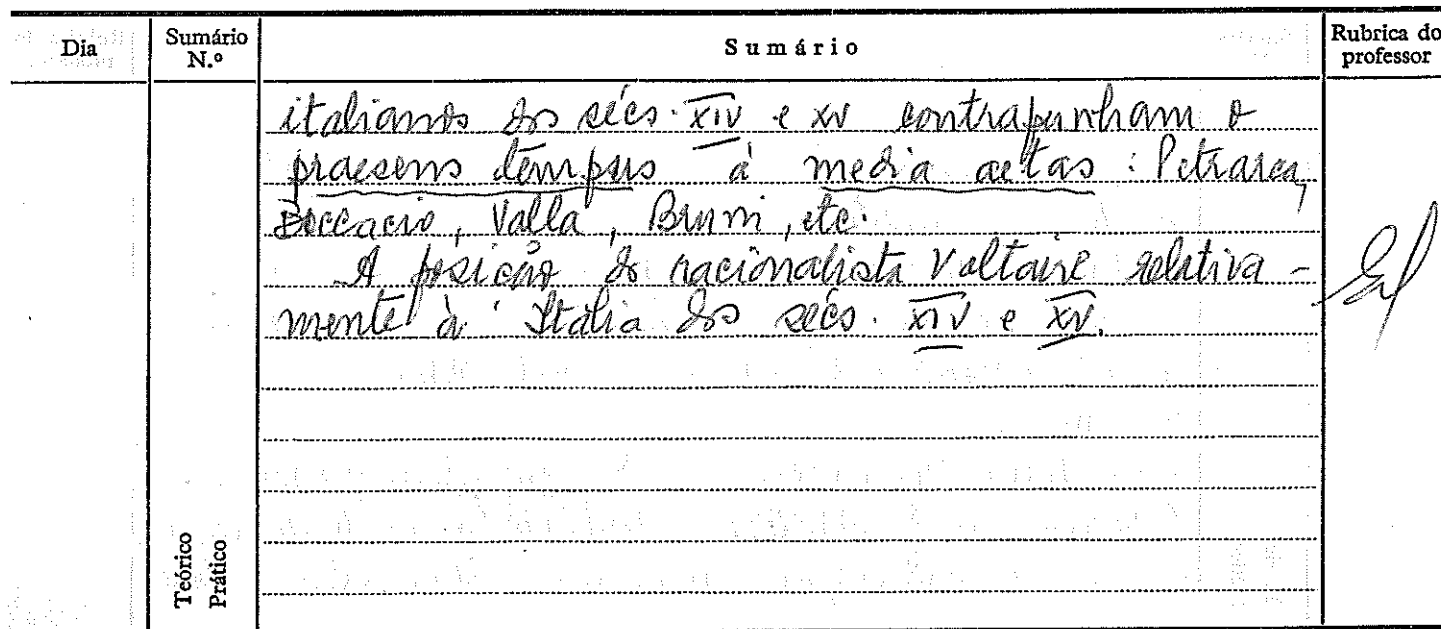 Dia
Sumário N.º
Sumário
Rubrica do professor
italianos dos sécs. XIV e XV contrapunham o
praesens tempus à media aetas : Petrarca,
Boccacio, Valla, Bruni, etc.
A posição do racionalista Voltaire relativa-
mente à Italia dos sécs. XIV e XV.
Teórico
Prático